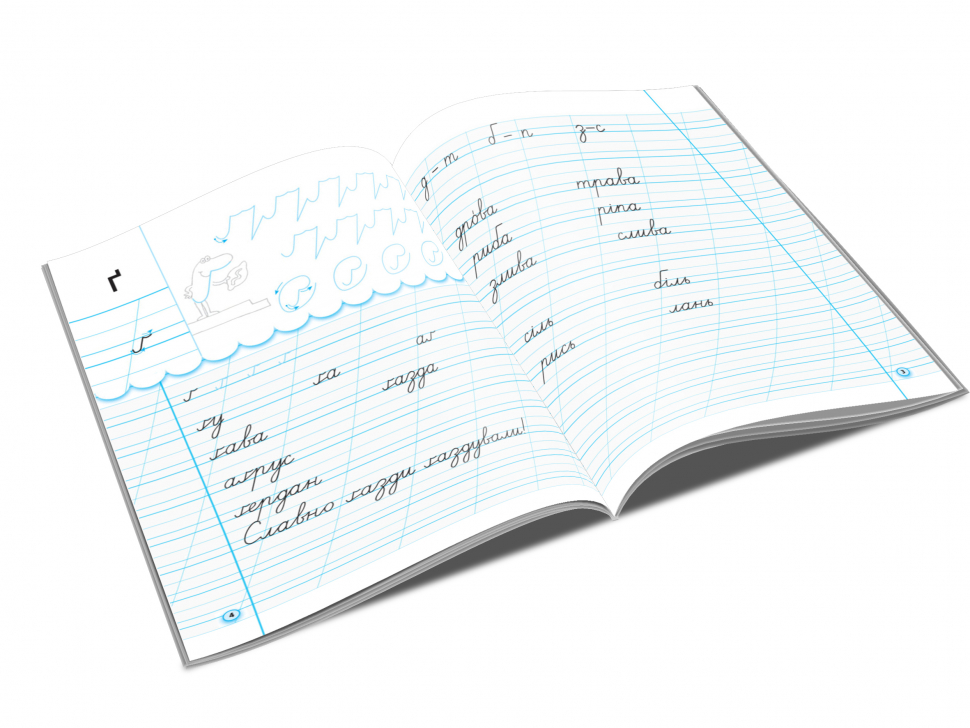 ґ
ґ
ґ
ґу ґа аґ
ґава ґазда
аґрус
ґердан
Славно ґазди ґаздували!
4
д – т б – п з–с
дро́ва трава
риба ріпа
злива слива
сіль біль
рись лань
3